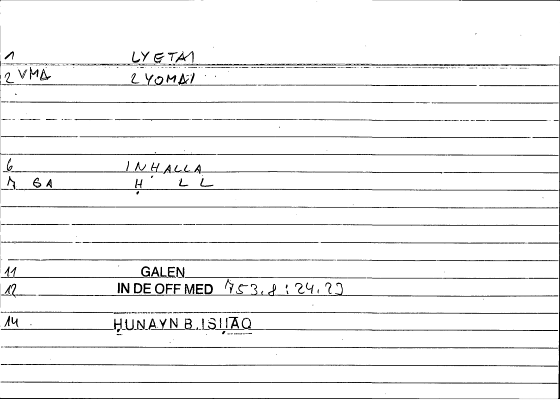 1 LYETAI
2 VMA 2 YOMAI
6 INHALLA
7 GA Ḥ LL
11 GALEN
12 IN DE OFF MED 753.8 : 24.25
14 ḤUNAYN B. ISḤĀQ